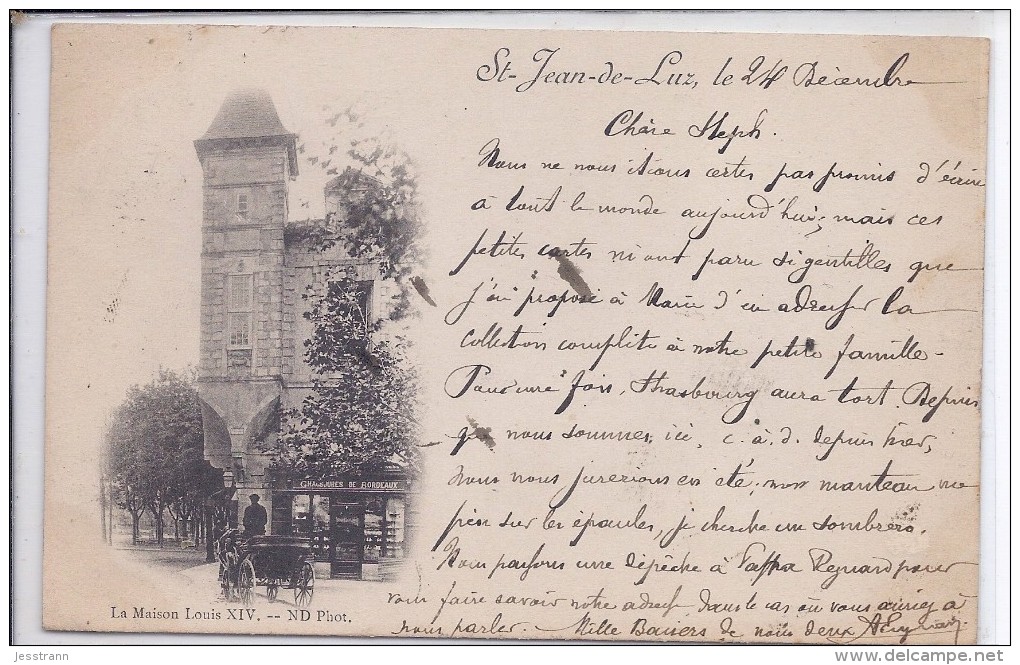 St-Jean-de-Luz, le 24 Décembre
Chère Steph.
Nous ne nous étions certes pas promis d'écrire
à tout le monde aujourd'hui; mais ces
petites cartes m'ont paru si gentilles que
j'ai proposé à Marie d'en adresser la
collection complète à notre petite famille-
Pour une fois, Strasbourg aura tort. Depuis
que nous sommes ici, c. à. d. depuis hier,
nous nous jurerions en été, mon manteau me
pèse sur les épaules, je cherche un sombrero.
Nous passons une dépêche à Regnard pour
vous faire savoir notre adresse dans le cas où vous auriez à
nous parler. - Mille Baisers de nous deux
CHAUSSURES DE BORDEAUX
La Maison Louis XIV. -- ND Phot.
jesstrann
http://www.delcampe.net